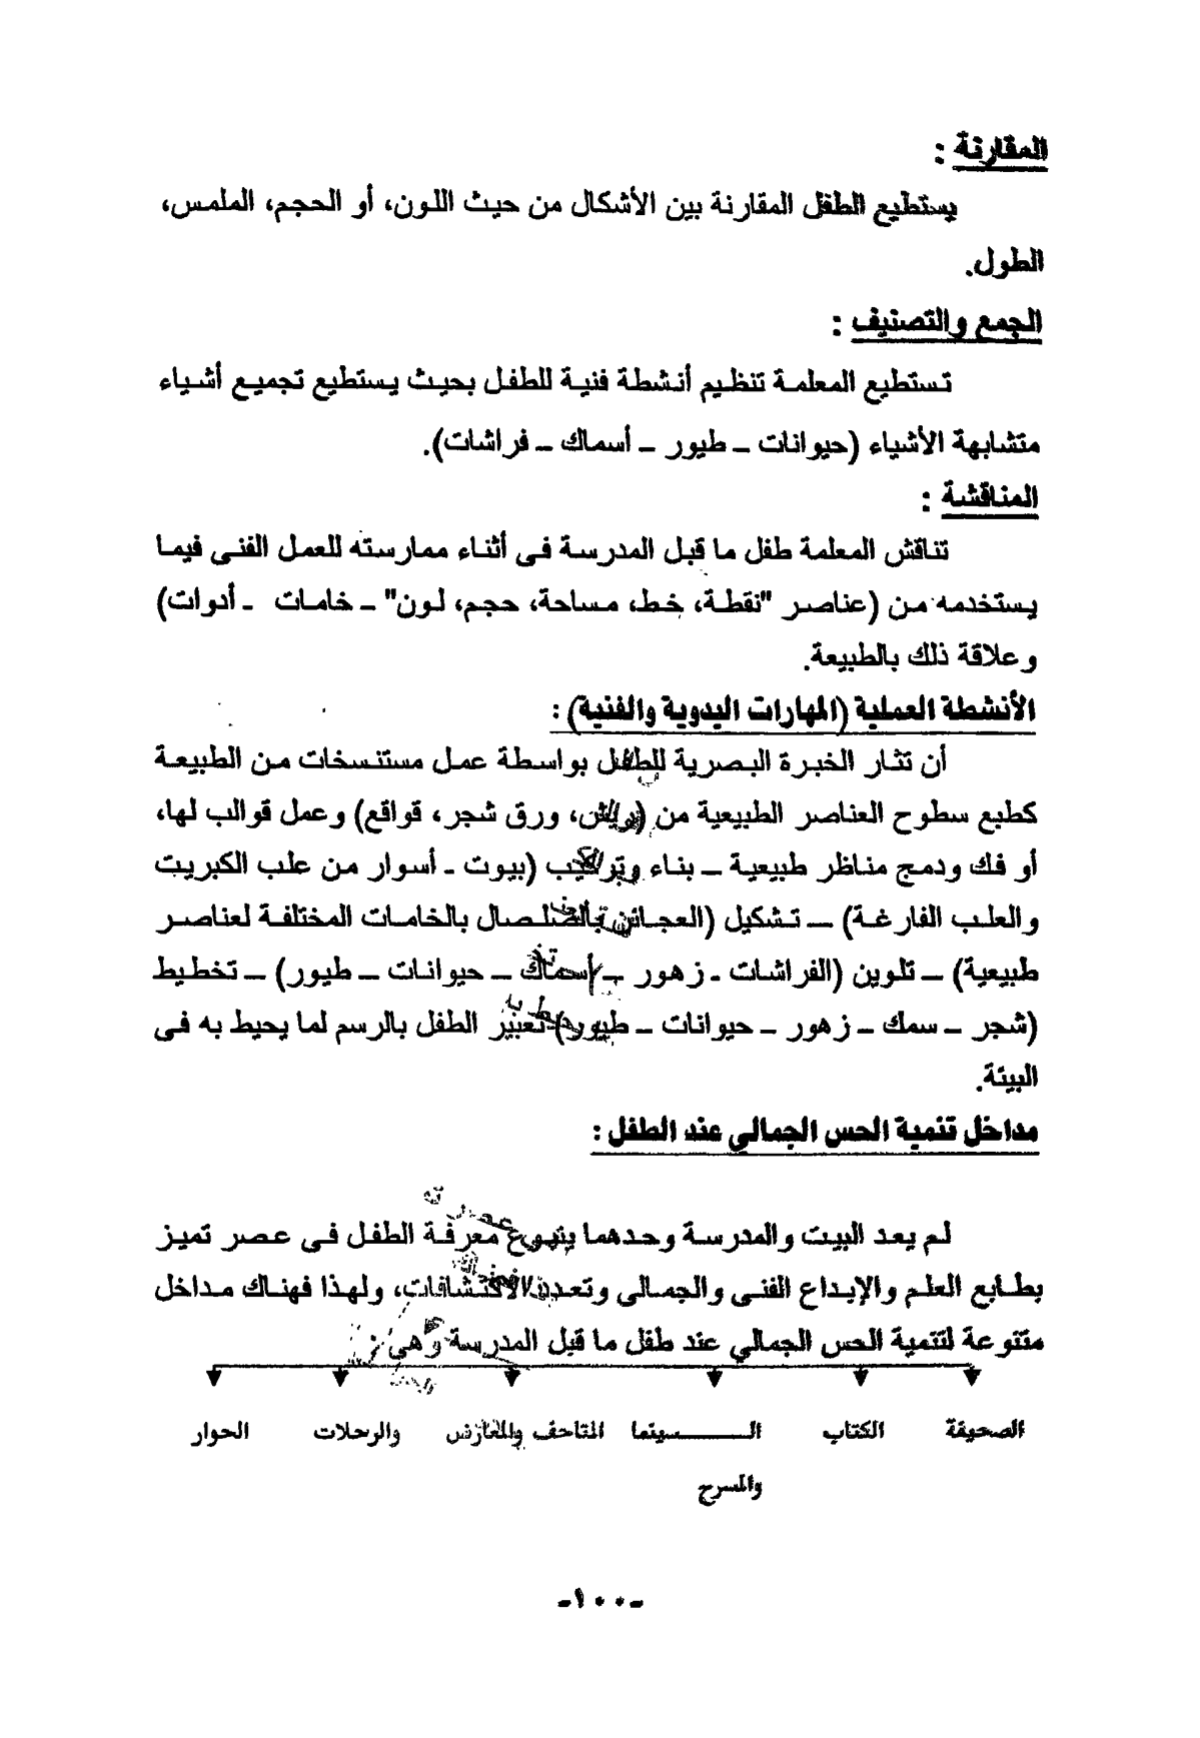 المقارنة :
يستطيع الطفل المقارنة بين الأشكال من حيث اللون، أو الحجم، الملمس،
الطول.
الجمع والتصنيف :
تستطيع المعلمة تنظيم أنشطة فنية للطفل بحيث يستطيع تجميع أشياء
متشابهة الأشياء (حيوانات – طيور – أسماك – فراشات).
المناقشة :
تناقش المعلمة طفل ما قبل المدرسة فى أثناء ممارسته للعمل الفنى فيما
يستخدمه من (عناصر "نقطة، خط، مساحة، حجم، لون" – خامات - أدوات)
وعلاقة ذلك بالطبيعة.
الأنشطة العملية (المهارات اليدوية والفنية) :
أن تثار الخبرة البصرية للطفل بواسطة عمل مستنسخات من الطبيعة
كطبع سطوح العناصر الطبيعية من (ريش، ورق شجر، قواقع) وعمل قوالب لها،
أو فك ودمج مناظر طبيعية – بناء وتركيب (بيوت - أسوار من علب الكبريت
والعلب الفارغة) – تشكيل (العجائن بالصلصال بالخامات المختلفة لعناصر
طبيعية) – تلوين (الفراشات - زهور – أسماك – حيوانات – طيور) – تخطيط
(شجر – سمك – زهور – حيوانات – طيور) تعبير الطفل بالرسم لما يحيط به فى
البيئة.
مداخل تنمية الحس الجمالي عند الطفل :
لم يعد البيت والمدرسة وحدهما ينبوع معرفة الطفل فى عصر تميز
بطابع العلم والإبداع الفنى والجمالى وتعدد الاكتشافات، ولهذا فهناك مداخل
متنوعة لتنمية الحس الجمالي عند طفل ما قبل المدرسة وهى :
الصحيفة الكتاب الـــــسينما المتاحف والمعارض والرحلات الحوار
والمسرح
-١٠٠-